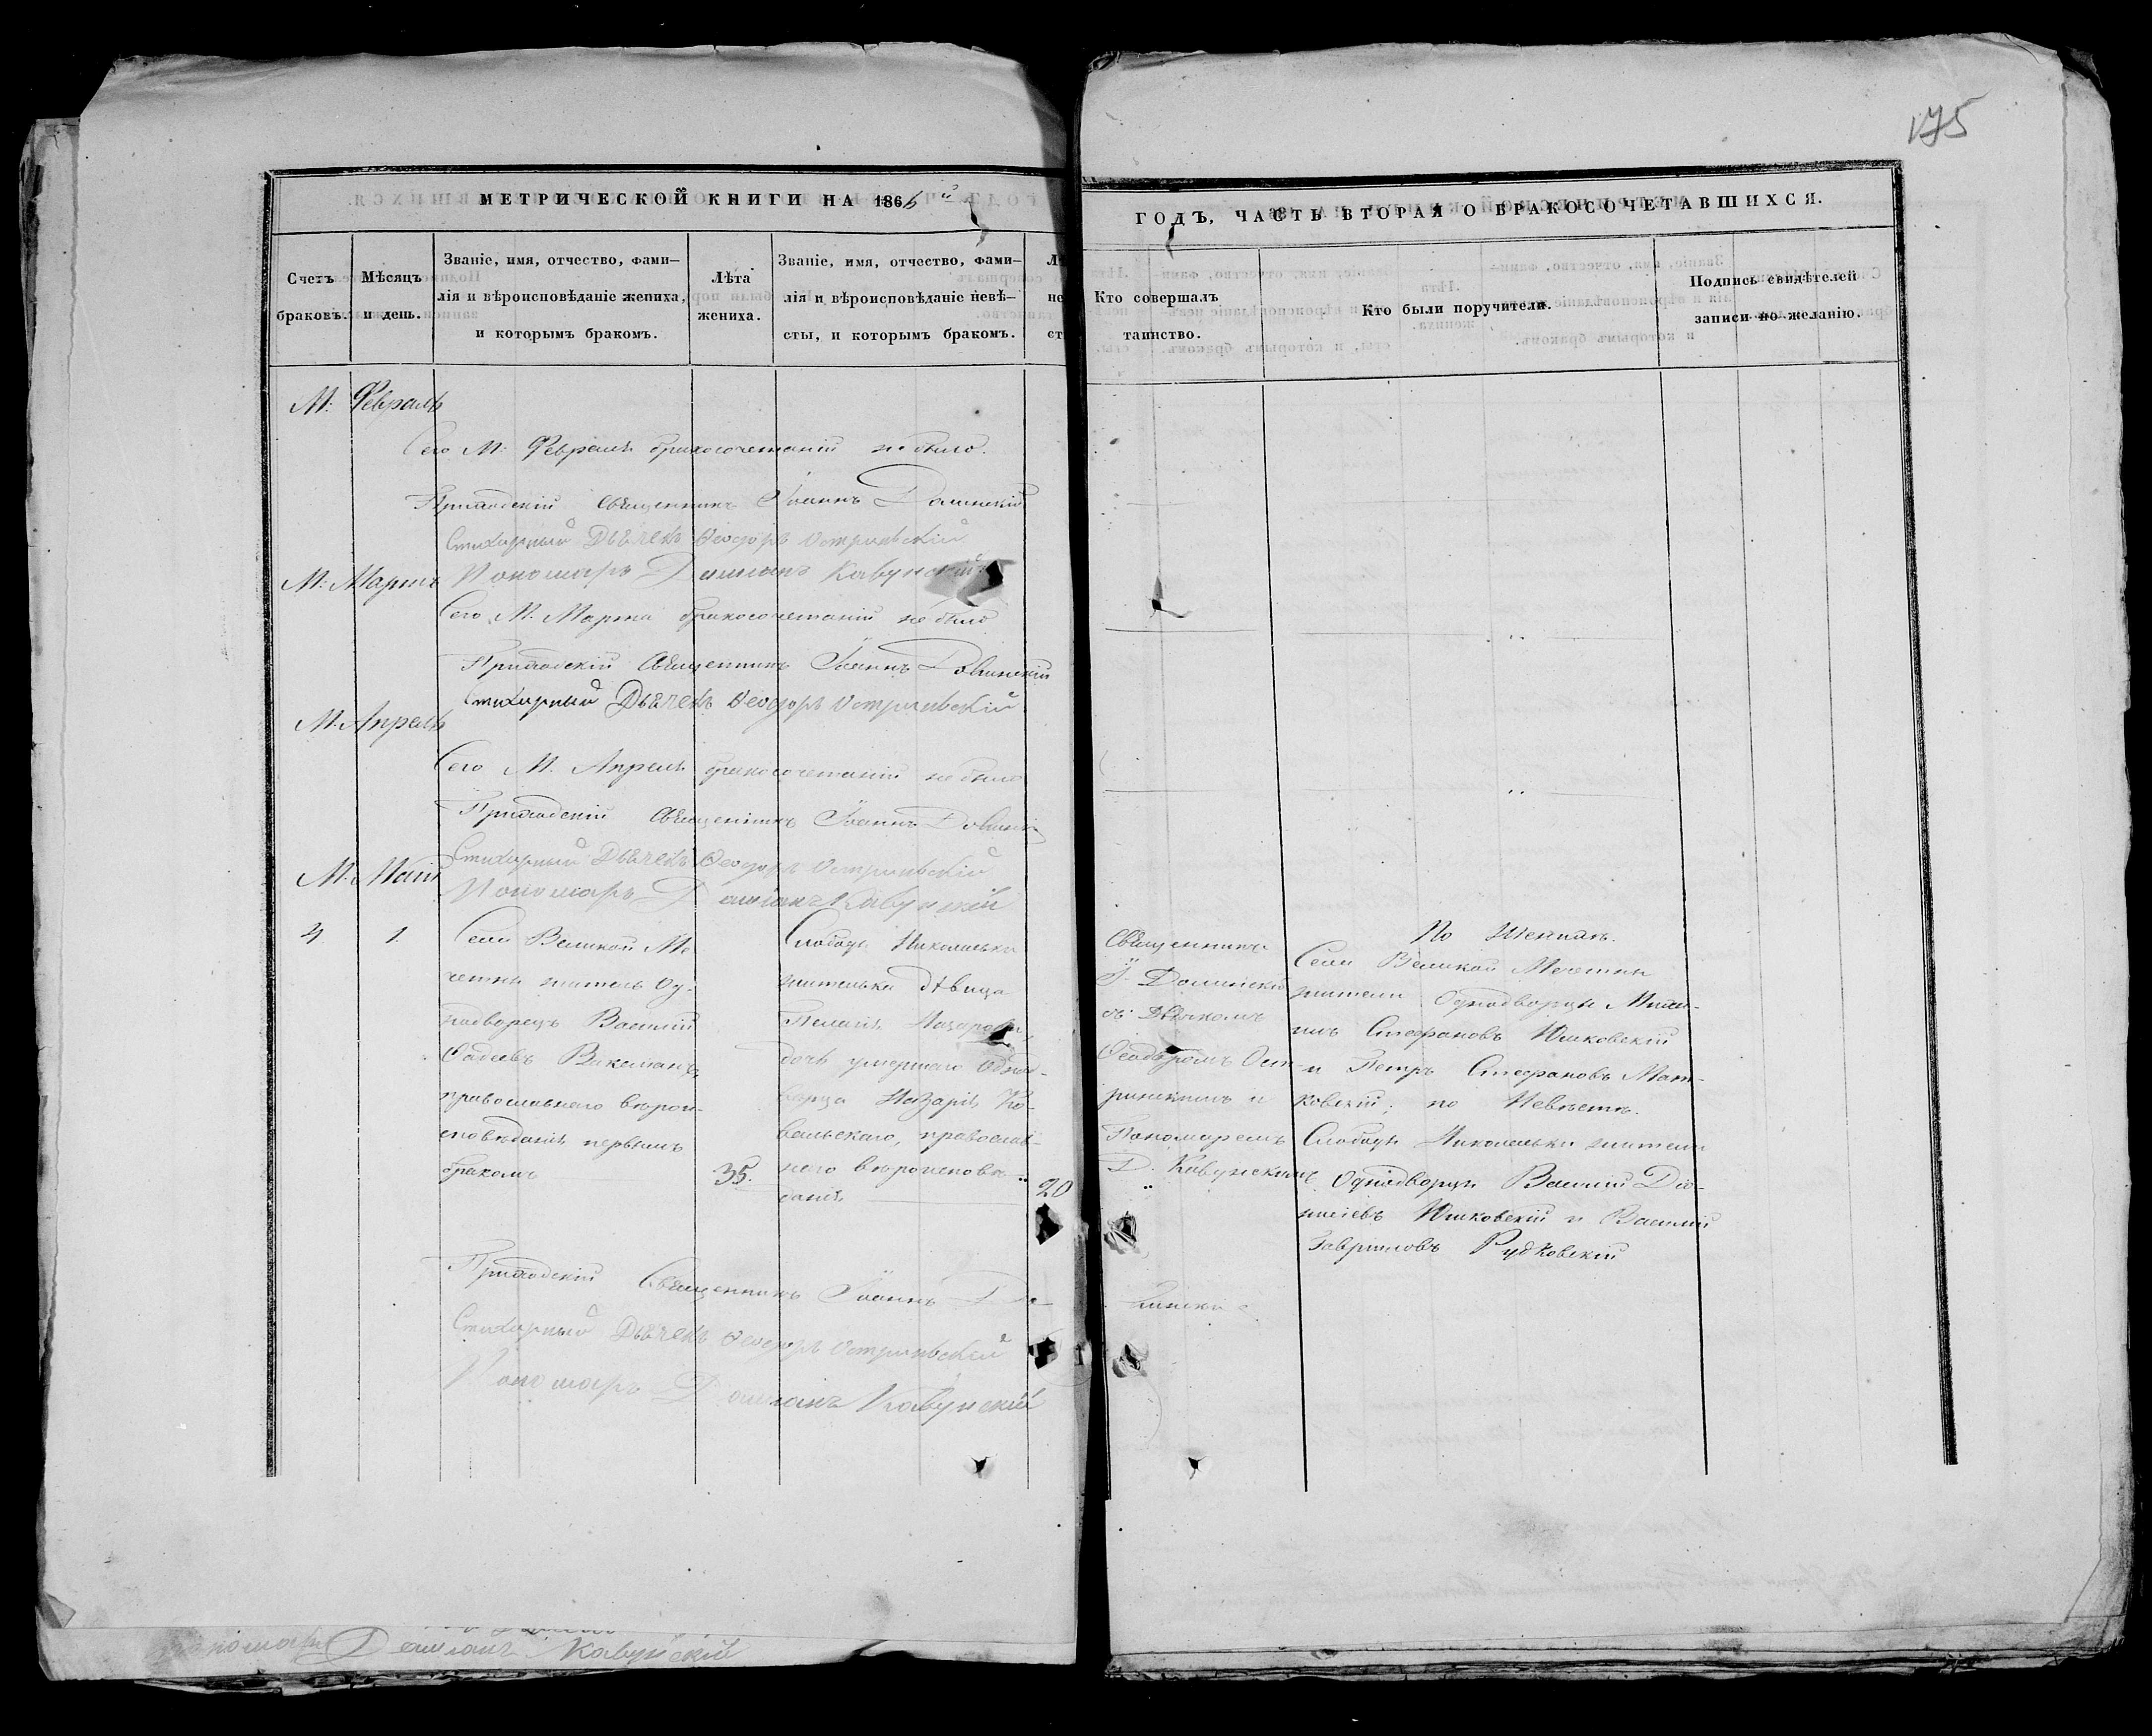 175
МЕТРИЧЕСКОЙ КНИГИ НА 1866й
ГОДЪ, ЧАСТЬ ВТОРАЯ О БРАКОСОЧЕТАВШИХСЯ.
Счетъ
браковъ.
Мѣсяцъ
и день.
Званіе, имя, отчество, фами–
лія и вѣроисповѣданіе жениха,
и которымъ бракомъ.
Лѣта
жениха.
Званіе, имя, отчество, фами–
лія и вѣроисповѣданіе невѣ–
сты, и которымъ бракомъ.
Кто совершалъ
таинство.
Кто были поручители.
Подпись свидѣтелей
записи по желанію.
М: Февраль
Сего М: Февраля бракосочетаній не было.
Приходскій Священникъ Іоаннъ Долинскій
Стихарный Дьячекъ Ѳеодоръ
Пономарь Даміанъ Кавунскій
М: Мартъ
Сего М. Марта бракосочетаній не было
Приходскій Священникъ Іоаннъ Долинскій
Стихарный Дьячекъ Ѳеодоръ
М. Апрель
Сего М. Апреля бракосочетаній не было
Приходскій Священникъ Іоаннъ
Стихарный Дьячекъ Ѳеодоръ
М. Маій
Пономарь Даміанъ Кавунскій
4
1.
Села Великой Ме
четни житель Од-
нодворецъ Василій
православнаго вѣрои-
сповѣданія первымъ
бракомъ
35.
Слободы Николаевки
жителька дѣвица
дочь умершаго Одно-
ворца Назарія Ко-
вальскаго, православ-
наго вѣроисповѣ-
данія
20
Священникъ
І. Долинскій
съ Дьячкомъ
Пономаремъ
Д. Кавунскимъ
По Женихѣ.
Села Великой Мечетни
жители Однодворцы Миха-
илъ Стефановъ Юшковскій
и Петръ Стефановъ Мат-
ковскій; по Невѣстѣ.
Слободы Николаевки жители
Однодворцы Василій Діо-
нисіевъ Юшковскій и Василій
Гавриловъ Рудковскій
Приходскій Священникъ Іоаннъ До
линскій
Стихарный Дьячекъ Ѳеодоръ
Пономарь Даміанъ Кавунскій
Пономарь Даміанъ Кавунскій